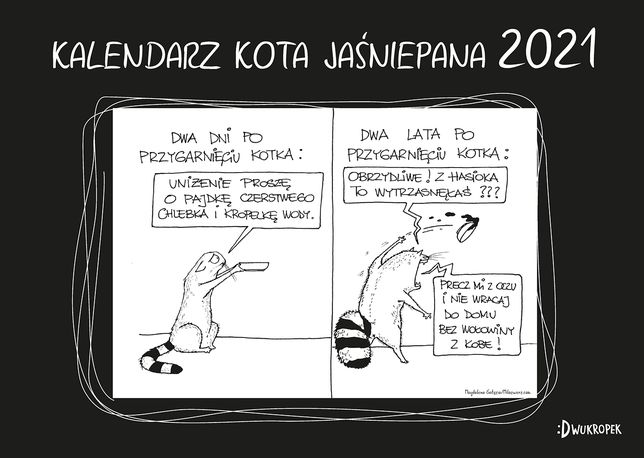 KALENDARZ KOTA JAŚNIEPANA 2021
DWA DNI PO
PRZYGARNIĘCIU KOTKA:
UNIŻENIE PROSZĘ
O PAJDKĘ CZERSTWEGO
CHLEBKA I KROPELKĘ WODY.
DWA LATA PO
PRZYGARNIĘCIU KOTKA:
OBRZYDLIWE! Z HASIOKA
TO WYTRZASNĘŁAŚ ???
PRECZ MI Z OCZU
I NIE WRACAJ
DO DOMU
BEZ WOŁOWINY
Z KOBE!
:DWUKROPEK